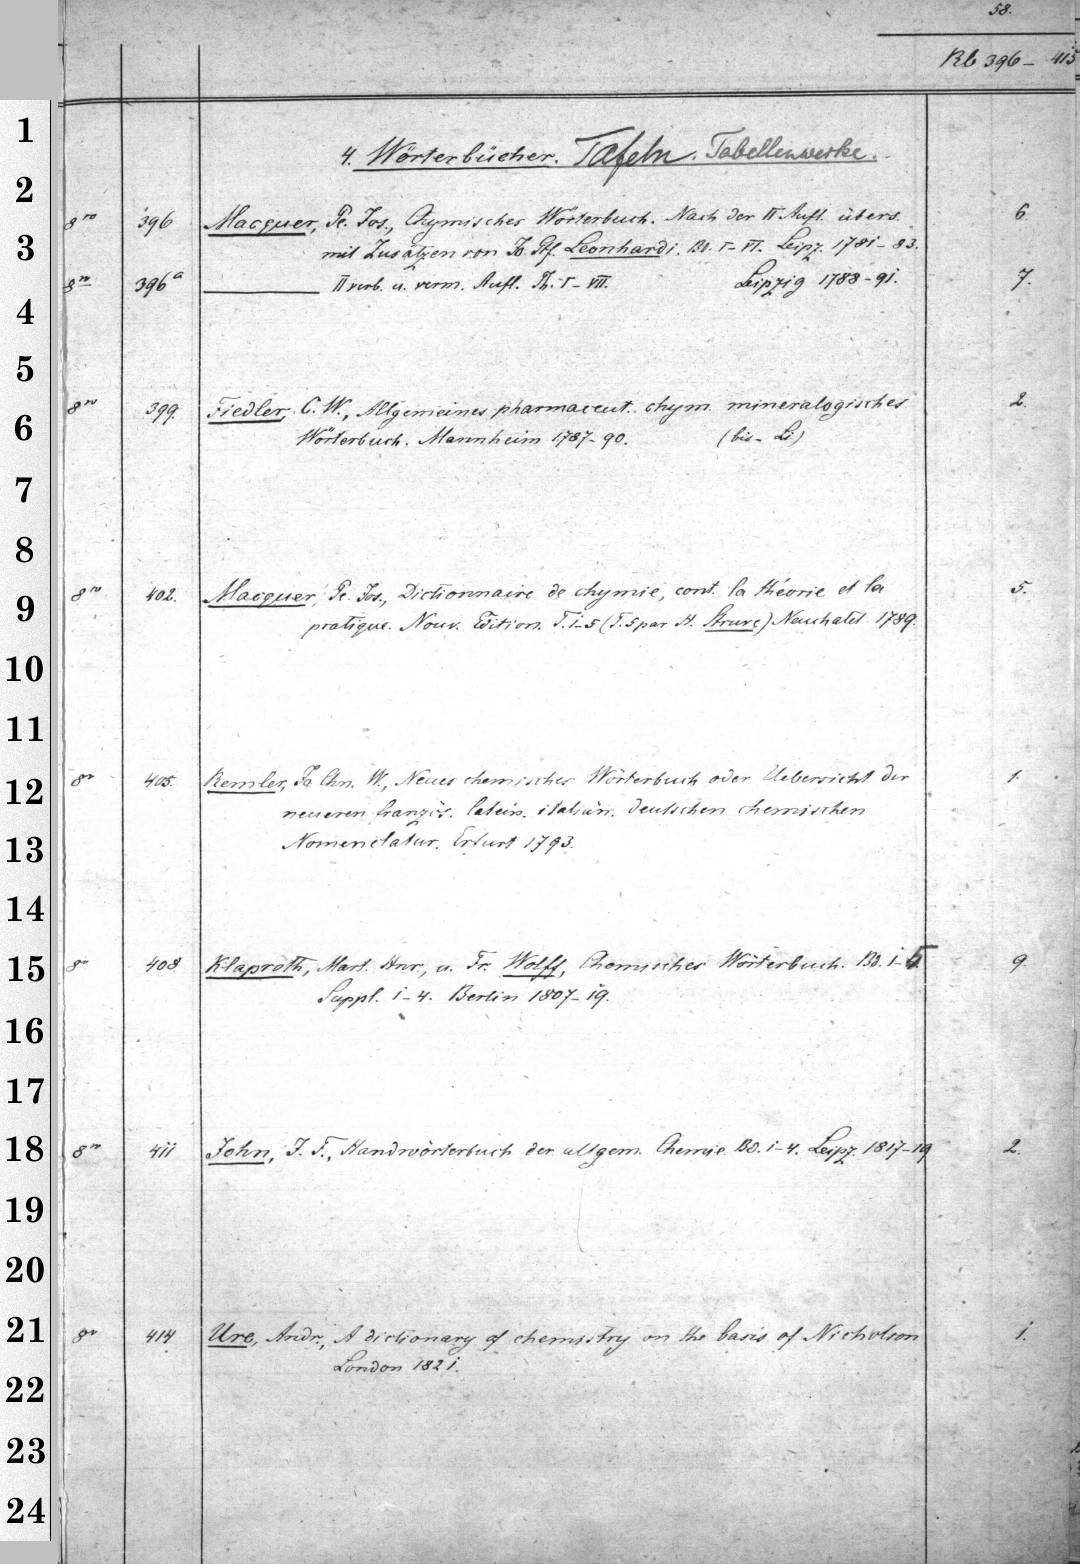 58.
Rb 396 – 415
4. Wörterbücher. Tafeln. Tabellenwerke.
8vo 396 Macquer, Pe. Jos., Chymisches Wörterbuch. Nach der II Aufl. übers. 6.
mit Zusätzen von Jo. Gf. Leonhardi. Bd. I–VI. Leipz. 1781–83.
8vo 396a ——— II verb. u. verm. Aufl. Th. I–VII. Leipzig 1788–91. 7.
8vo 399. Fiedler, C. W., Allgemeines pharmaceut. chym. mineralogisches 2.
Wörterbuch. Mannheim 1787–90. (bis – Li)
8vo 402. Macquer, Pe. Jos., Dictionnaire de chymie, cont. la théorie et la 5.
pratique. Nouv. Edition. T. 1–5 (T. 5 par H. Struve) Neuchatel 1789.
8vo 405. Remler, Ja Chn. W., Neues chemisches Wörterbuch oder Uebersicht der 1.
neueren französ. latein. italiän. deutschen chemischen
Nomenclatur. Erfurt 1793.
8vo 408 Klaproth, Mart. Hnr., u. Fr. Wolff, Chemisches Wörterbuch. Bd. 1–5 9.
Suppl. 1–4. Berlin 1807–19.
8vo 411 John, J. F., Handwörterbuch der allgem. Chemie. Bd. 1–4. Leipz. 1817–19 2.
8vo 414 Ure, Andr., A dictionary of chemistry on the basis of Nicholson 1.
London 1821.
1
2
3
4
5
6
7
8
9
10
11
12
13
14
15
16
17
18
19
20
21
22
23
24